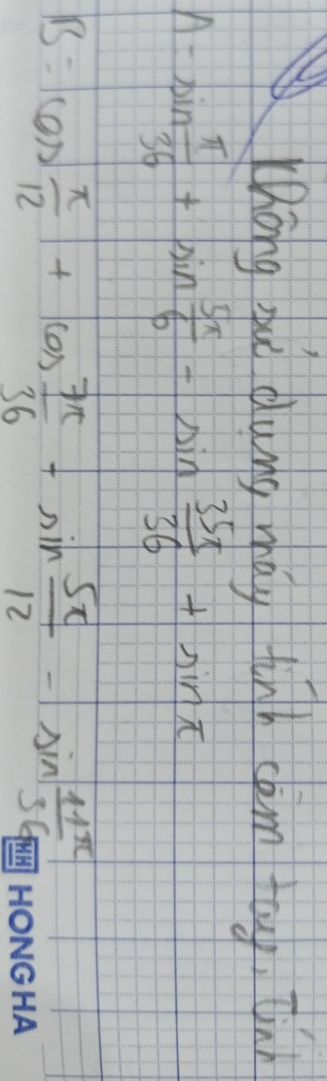 Không sử dụng máy tính cầm tay, Tính
A = sin π/36 + sin 5π/6 - sin 35π/36 + sin π
B = cos π/12 + cos 7π/36 - sin 5π/12 - sin 11π/36
HH HONGHA